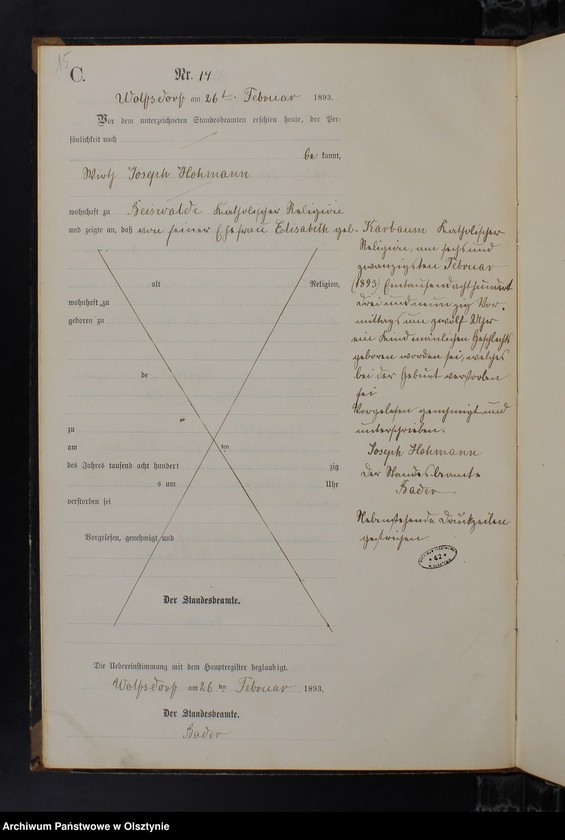 15
C.
Nr. 14
Wolfsdorf am 26ten Februar 1893.
Vor dem unterzeichneten Standesbeamten erschien heute, der Per-
sönlichkeit nach
be kannt,
Wirth Joseph Hohmann
wohnhaft zu Beiswalde katholischer Religion
und zeigte an, daß von seiner Ehefrau Elisabeth geb. Karbaum katholischer
Religion, am sechs und
zwanzigsten Februar
(1893) Eintausendachthundert
drei und neunzig Vor-
mittags um zwölf Uhr
ein Kind männlichen Geschlechts
geboren worden sei, welches
bei der Geburt verstorben
sei
Vorgelesen genehmigt und
unterschrieben:
Joseph Hohmann
Der Standesbeamte
Bader
Nebenstehende Druckzeilen
gestrichen.
42
alt Religion,
wohnhaft zu
geboren zu
de
zu
am ten
des Jahres tausend acht hundert zig
s um Uhr
verstorben sei
Vorgelesen, genehmigt und
Der Standesbeamte.
Die Uebereinstimmung mit dem Hauptregister beglaubigt.
Wolfsdorf am 26ten Februar 1893.
Der Standesbeamte.
Bader
Archiwum Państwowe w Olsztynie